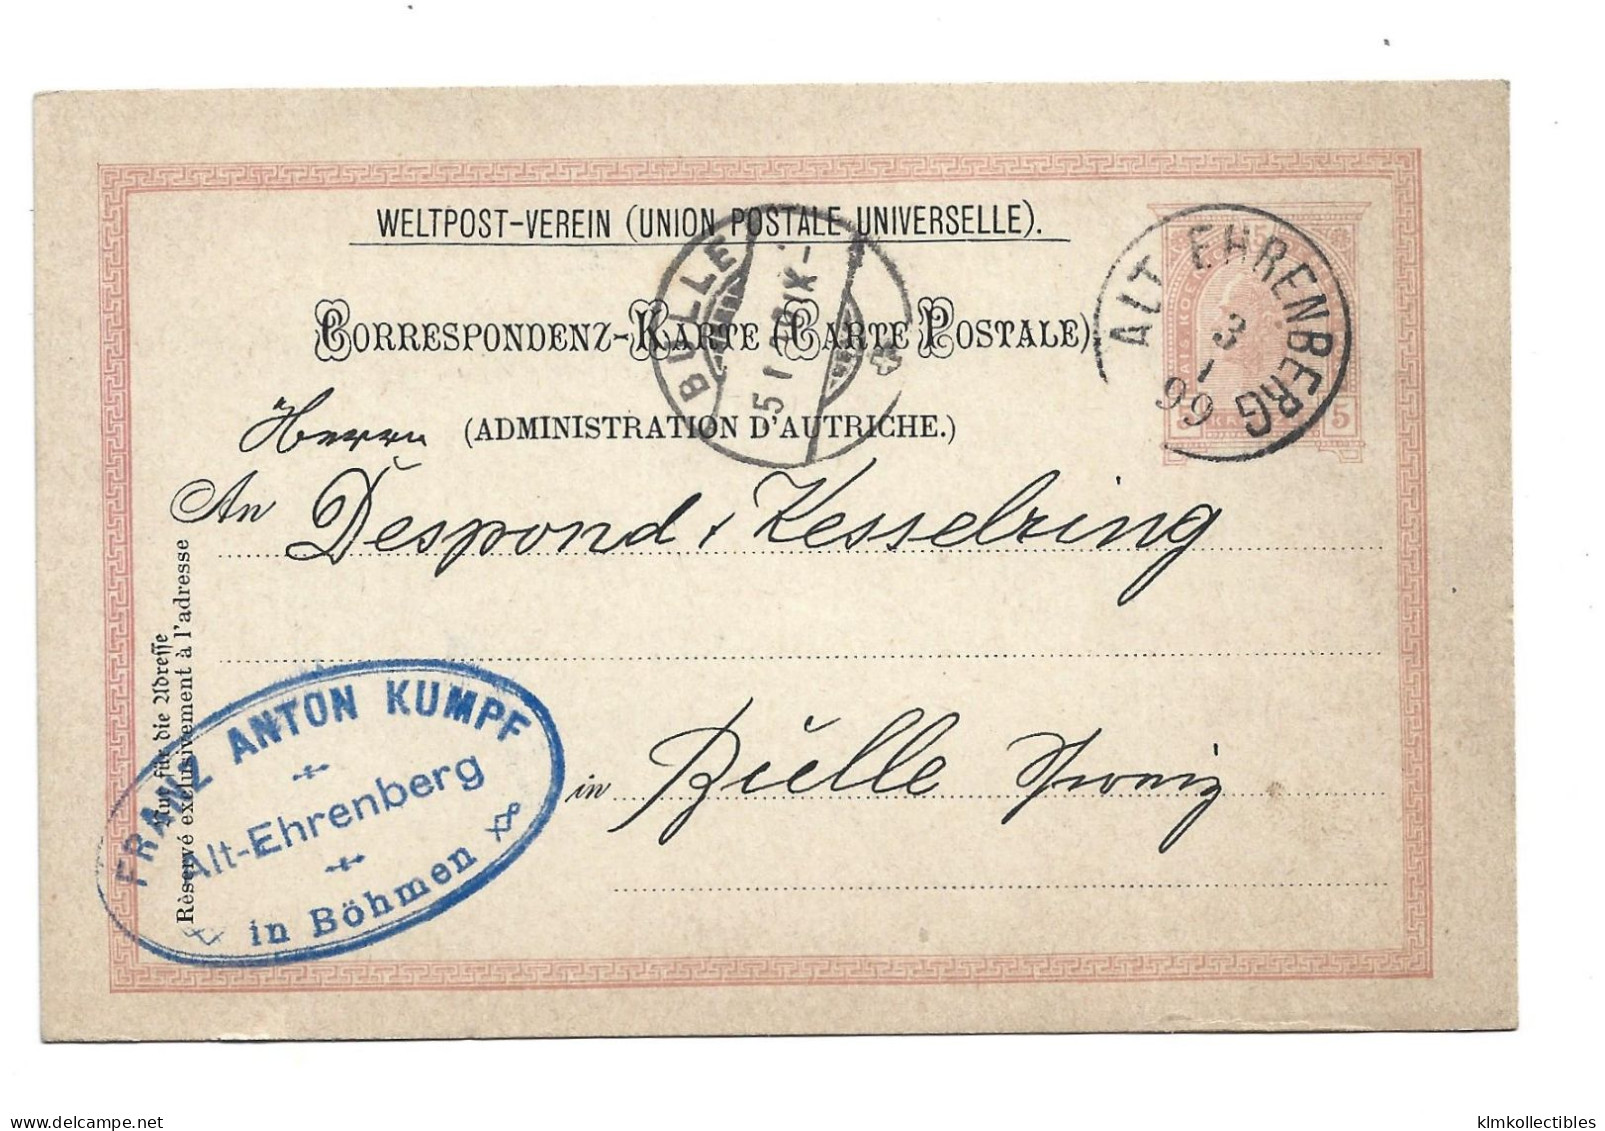 WELTPOST-VEREIN (UNION POSTALE UNIVERSELLE).
CORRESPONDENZ-KARTE (CARTE POSTALE)
(ADMINISTRATION D'AUTRICHE.)
ALT EHRENBERG
3
1
99
5
BULLE
5 I
IX-
Herrn
An Despond & Kesselring
in Bülle Schweiz
Nur für die Adresse
Réservé exclusivement à l'adresse
FRANZ ANTON KUMPF
Alt-Ehrenberg
in Böhmen
delcampe.net
klmkollectibles